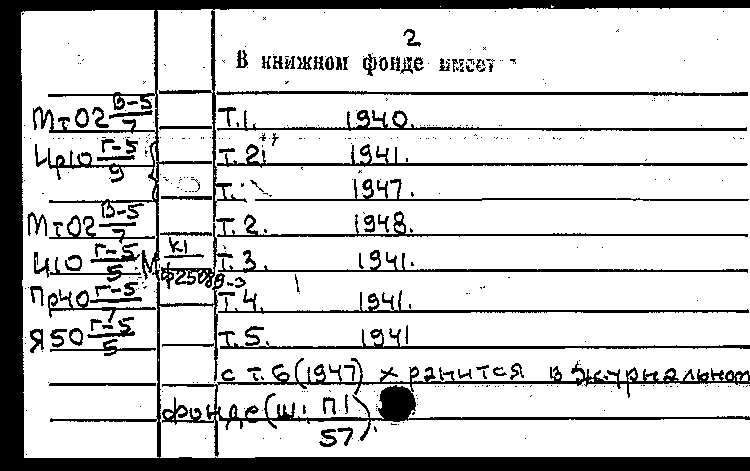 2
В книжном фонде имеет
МтО2 В-5/7 Т.1. 1940.
Цр10 Г-5/9 Т.2. 1941.
Т. 1947.
МтО2 В-5/7 Т.2. 1948.
Ц10 Г-5/5 М К1/Ф25089-э Т.3. 1941.
Пр40 Г-5/7 Т.4. 1941.
Я50 Г-5/5 Т.5. 1941
с т.6(1947) хранится в журнальном
фонде(ш: П1/57).